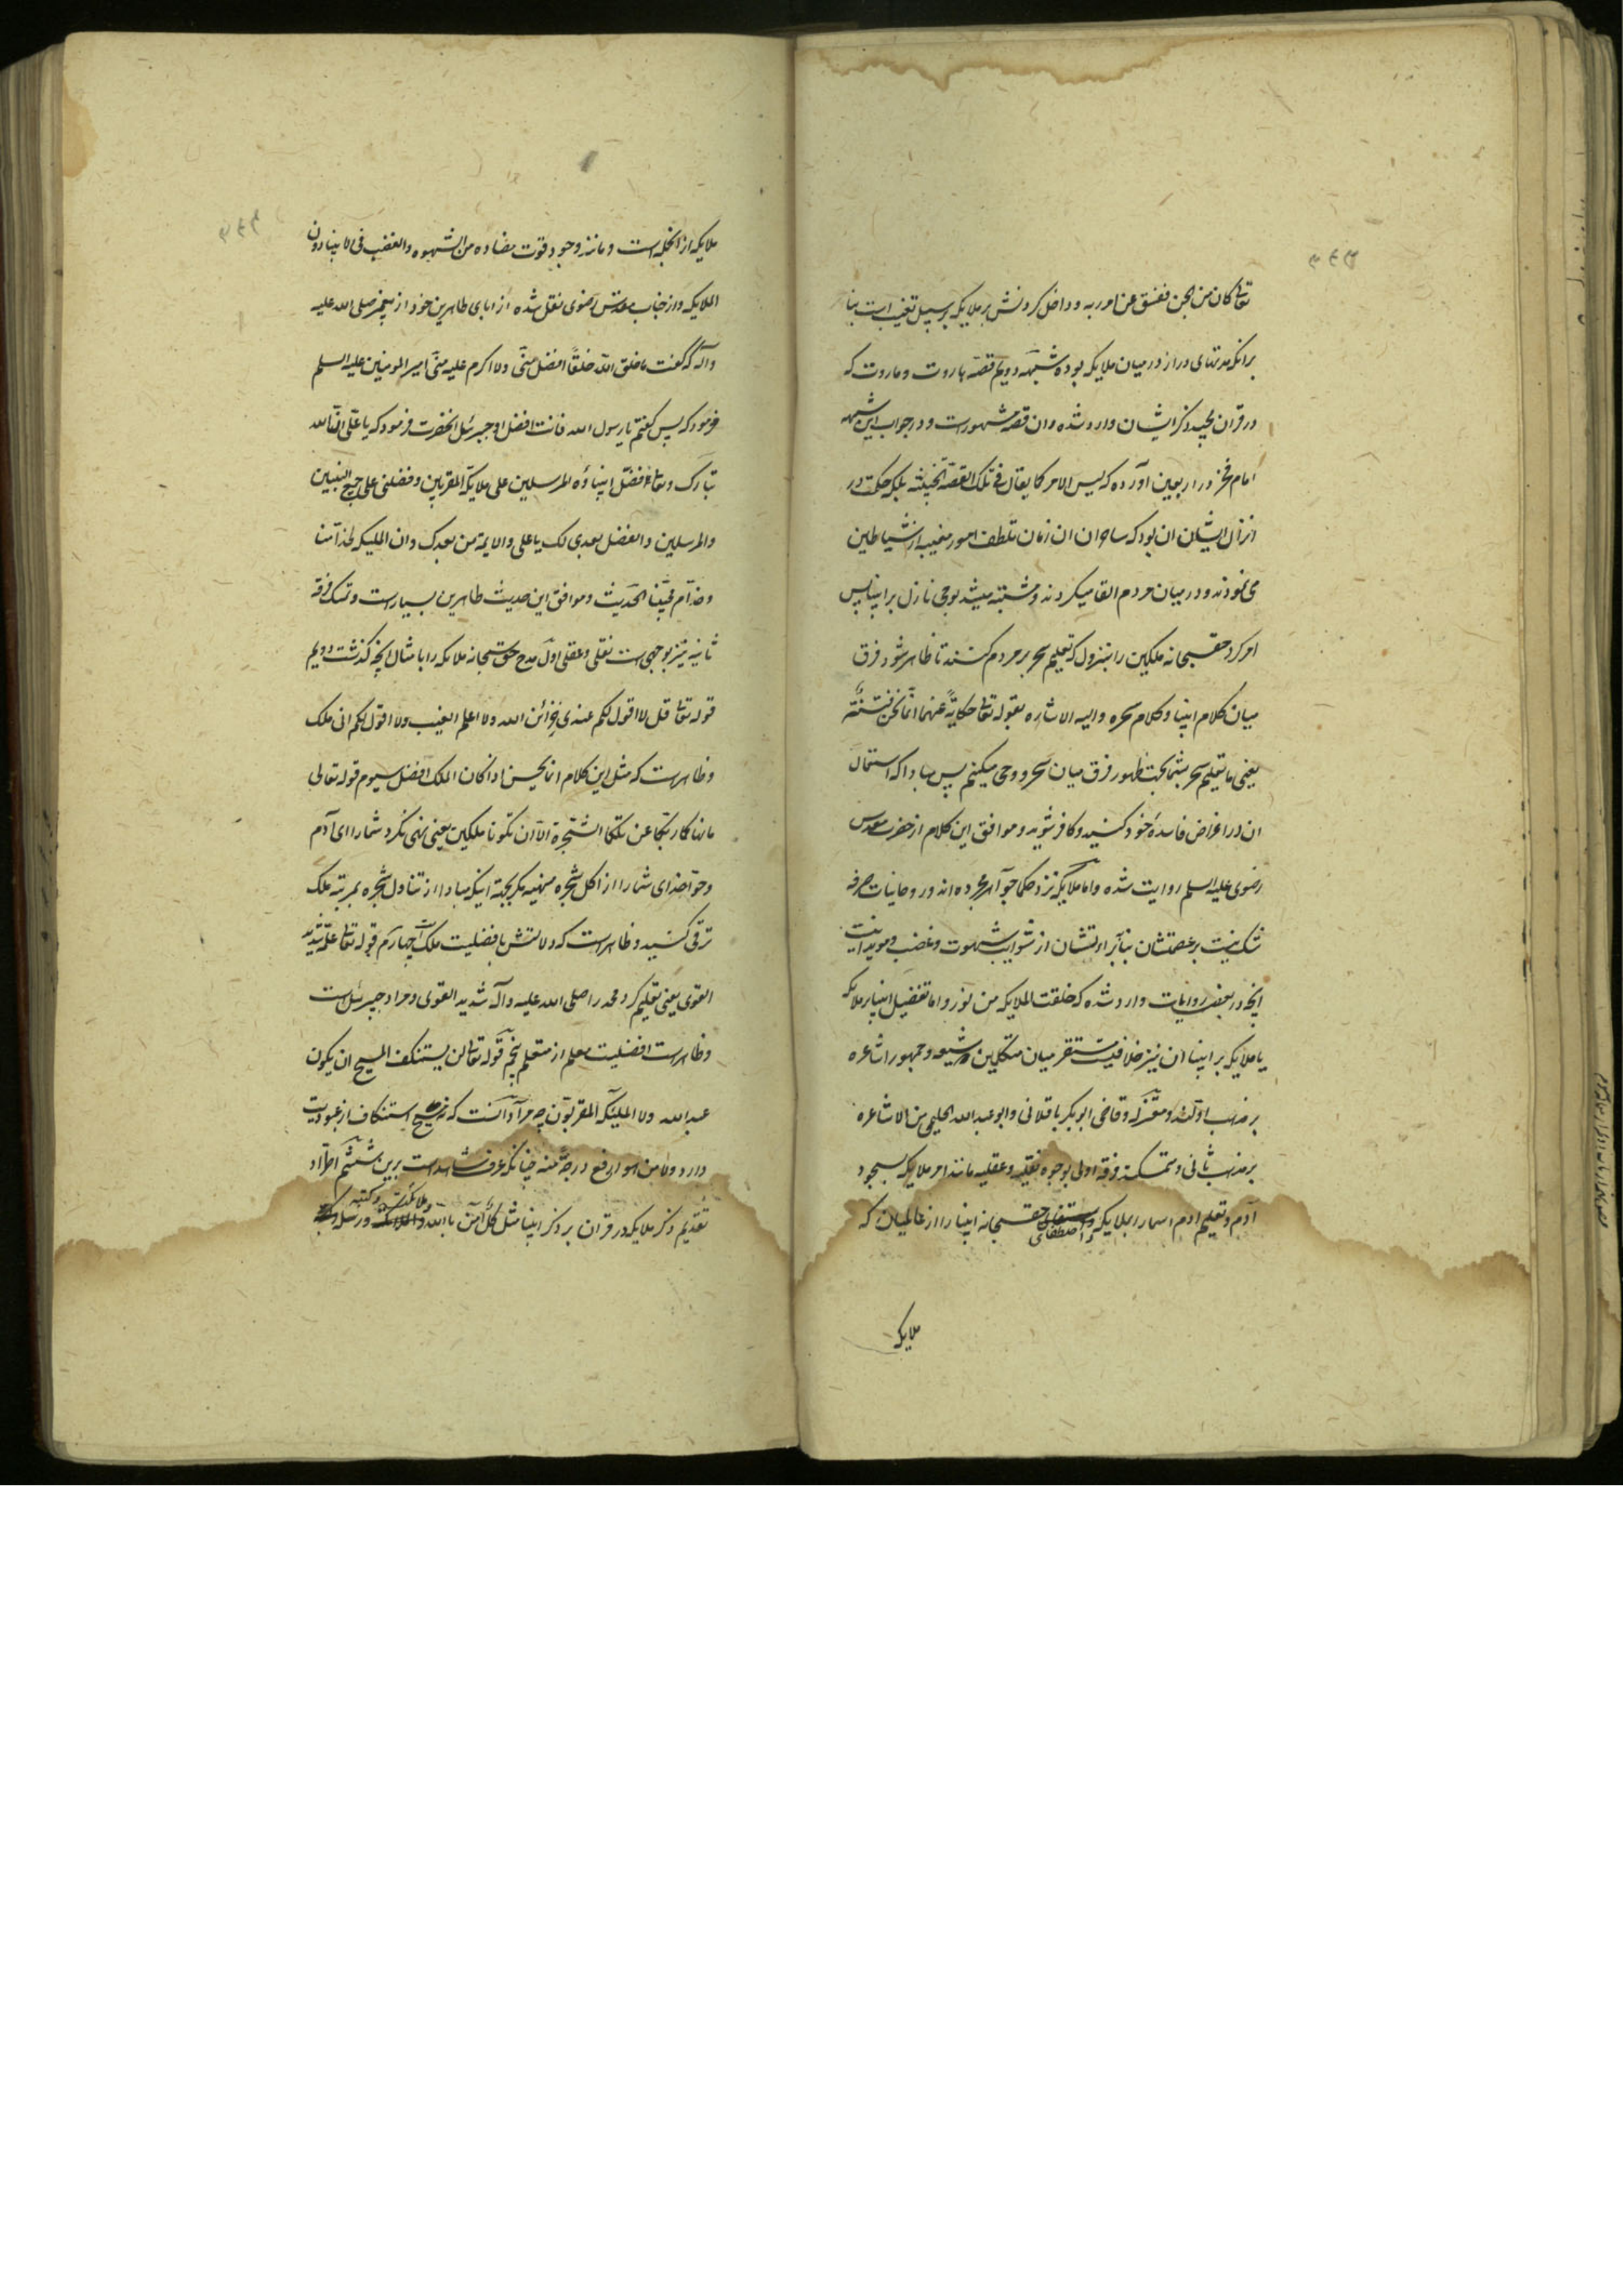 تعالی کان من الجن ففسق عن امر ربه و داخل کردنش بر ملایکه بر سبیل تغلیب است بنا
برانکه مدتهای دراز در میان ملایکه بوده شبهه دویم قصه هاروت و ماروت که
در قران مجید ذکر ایشان وارد شده و ان قصه مشهورست و در جواب این شبهه
امام فخر در اربعین آورده که لیس الامر کما یقال فی تلک القصة الخبیثه بلکه حکمت در
انزال ایشان ان بود که ساحران ان زمان تلطف امور مغیبه از شیاطین
می نمودند و در میان مردم القا میکردند و مشتبه میشد بوحی نازل بر انبیا پس
امر کرد حقسبحانه ملکین را بنزول که تعلیم سحر بر مردم کنند تا ظاهر شود فرق
میان کلام انبیا و کلام سحره والیه الاشاره بقوله تعالی حکایةً عنهما انّما نحن فتنةٌ
یعنی ما تعلیم سحر بشما بجهت ظهور فرق میان سحر و وحی میکنیم پس مبادا که استعمال
ان در اغراض فاسدهٔ خود کنید و کافر شوید و موافق این کلام از حضرت مقدس
رضوی علیه السلم روایت شده و اما ملایکه نزد حکما جواهر مجرده اند و روحانیات صرفه
شک نیست بر عصمتشان بنابر برائتشان از شوایب شهوت و غضب و موید اینست
انچه در بعض روایات وارد شده که خلقت الملایکه من نور و اما تفضیل انبیا بر ملایکه
یا ملایکه بر انبیا ان نیز خلافیست مستقر میان متکلمین و شیعه و جمهور اشاعره
بر مذهب اولند و معتزله و قاضی ابوبکر باقلانی و ابو عبد الله الحلیمی من الاشاعره
بر مذهب ثانی و متمسک فرقه اولی بوجوه نقلیه و عقلیه مانند امر ملایکه بسجود
آدم و تعلیم ادم اسما را بملایکه و اصطفای حقسبحانه انبیا را از عالمیان که
ملایکه
ملایکه از انجمله است و مانند وجود قوت مضاده من الشهوه والغضب فی الانبیا دون
الملایکه و از جناب مقدس رضوی نقل شده از ابای طاهرین خود از پیغمبر صلی الله علیه
وآله که گفت ما خلق الله خلقًا افضل منّی ولا اکرم علیه منّی امیر المومنین علیه السلم
فرمود که پس گفتم یا رسول الله فانت افضل او جبرئیل انحضرت فرمود که یا علی انّ الله
تبارک وتعالی فضّل انبیاؤه المرسلین علی ملایکة المقربین وفضلنی علی جمیع النبیین
والمرسلین والفضل بعدی لک یا علی والایمة من بعدک وان الملیکه لخدّامنا
وخدّام محبّینا الحدیث و موافق این حدیث طاهرین بسیارست و تمسک فرقه
ثانیه نیز بوجهی است نقلی و عقلی اول مدح حق سبحانه ملایکه را بامثال انچه گذشت دویم
قوله تعالی قل لا اقول لکم عندی خزائن الله ولا اعلم الغیب ولا اقول لکم انی ملک
و ظاهرست که مثل این کلام انما یحسن اذا کان الملک افضل سیوم قوله تعالی
ما نهاکما ربّکما عن تلکما الشّجرة الّا ان تکونا ملکین یعنی نهی نکرد شما را ای آدم
و حوّا خدای شما را از اکل شجره منهیه مگر بجهة اینکه مبادا از تناول شجره بمرتبه ملک
ترقی کنید و ظاهرست که دلالتش بافضلیت ملک است چهارم قوله تعالی علّمه شدید
القوی یعنی تعلیم کرد محمد را صلی الله علیه وآله شدید القوی و مراد جبرئیل است
و ظاهرست افضلیت معلم از متعلم پنجم قوله تعالی لن یستنکف المسیح ان یکون
عبد الله ولا الملیکة المقربون چه مراد آنست که نه مسیح استنکاف از عبودیت
دارد ولا من هو ارفع درجةً منه چنانکه عرف شاهدست برین ششم اطّراد
تقدیم ذکر ملایکه در قران بر ذکر انبیا مثل کلٌّ آمن بالله و ملائکته و کتبه و رسله